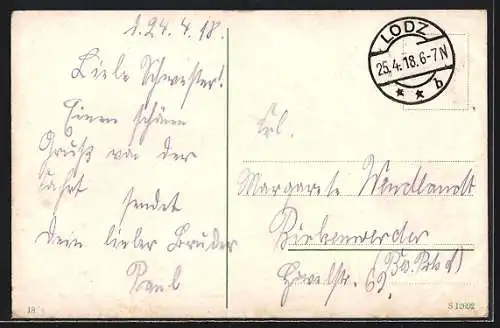 d. 24. 4. 18.
Liebe Schwester!
Einen schönen
Gruß von der
Fahrt
sendet
Dein lieber Bruder
Paul
LODZ
25.4.18.6-7N
* * b
Frl.
Margarete Wendlandt
Birkenwerder
(Bez. Potsd)
Havelstr. 62.
18
S 1992